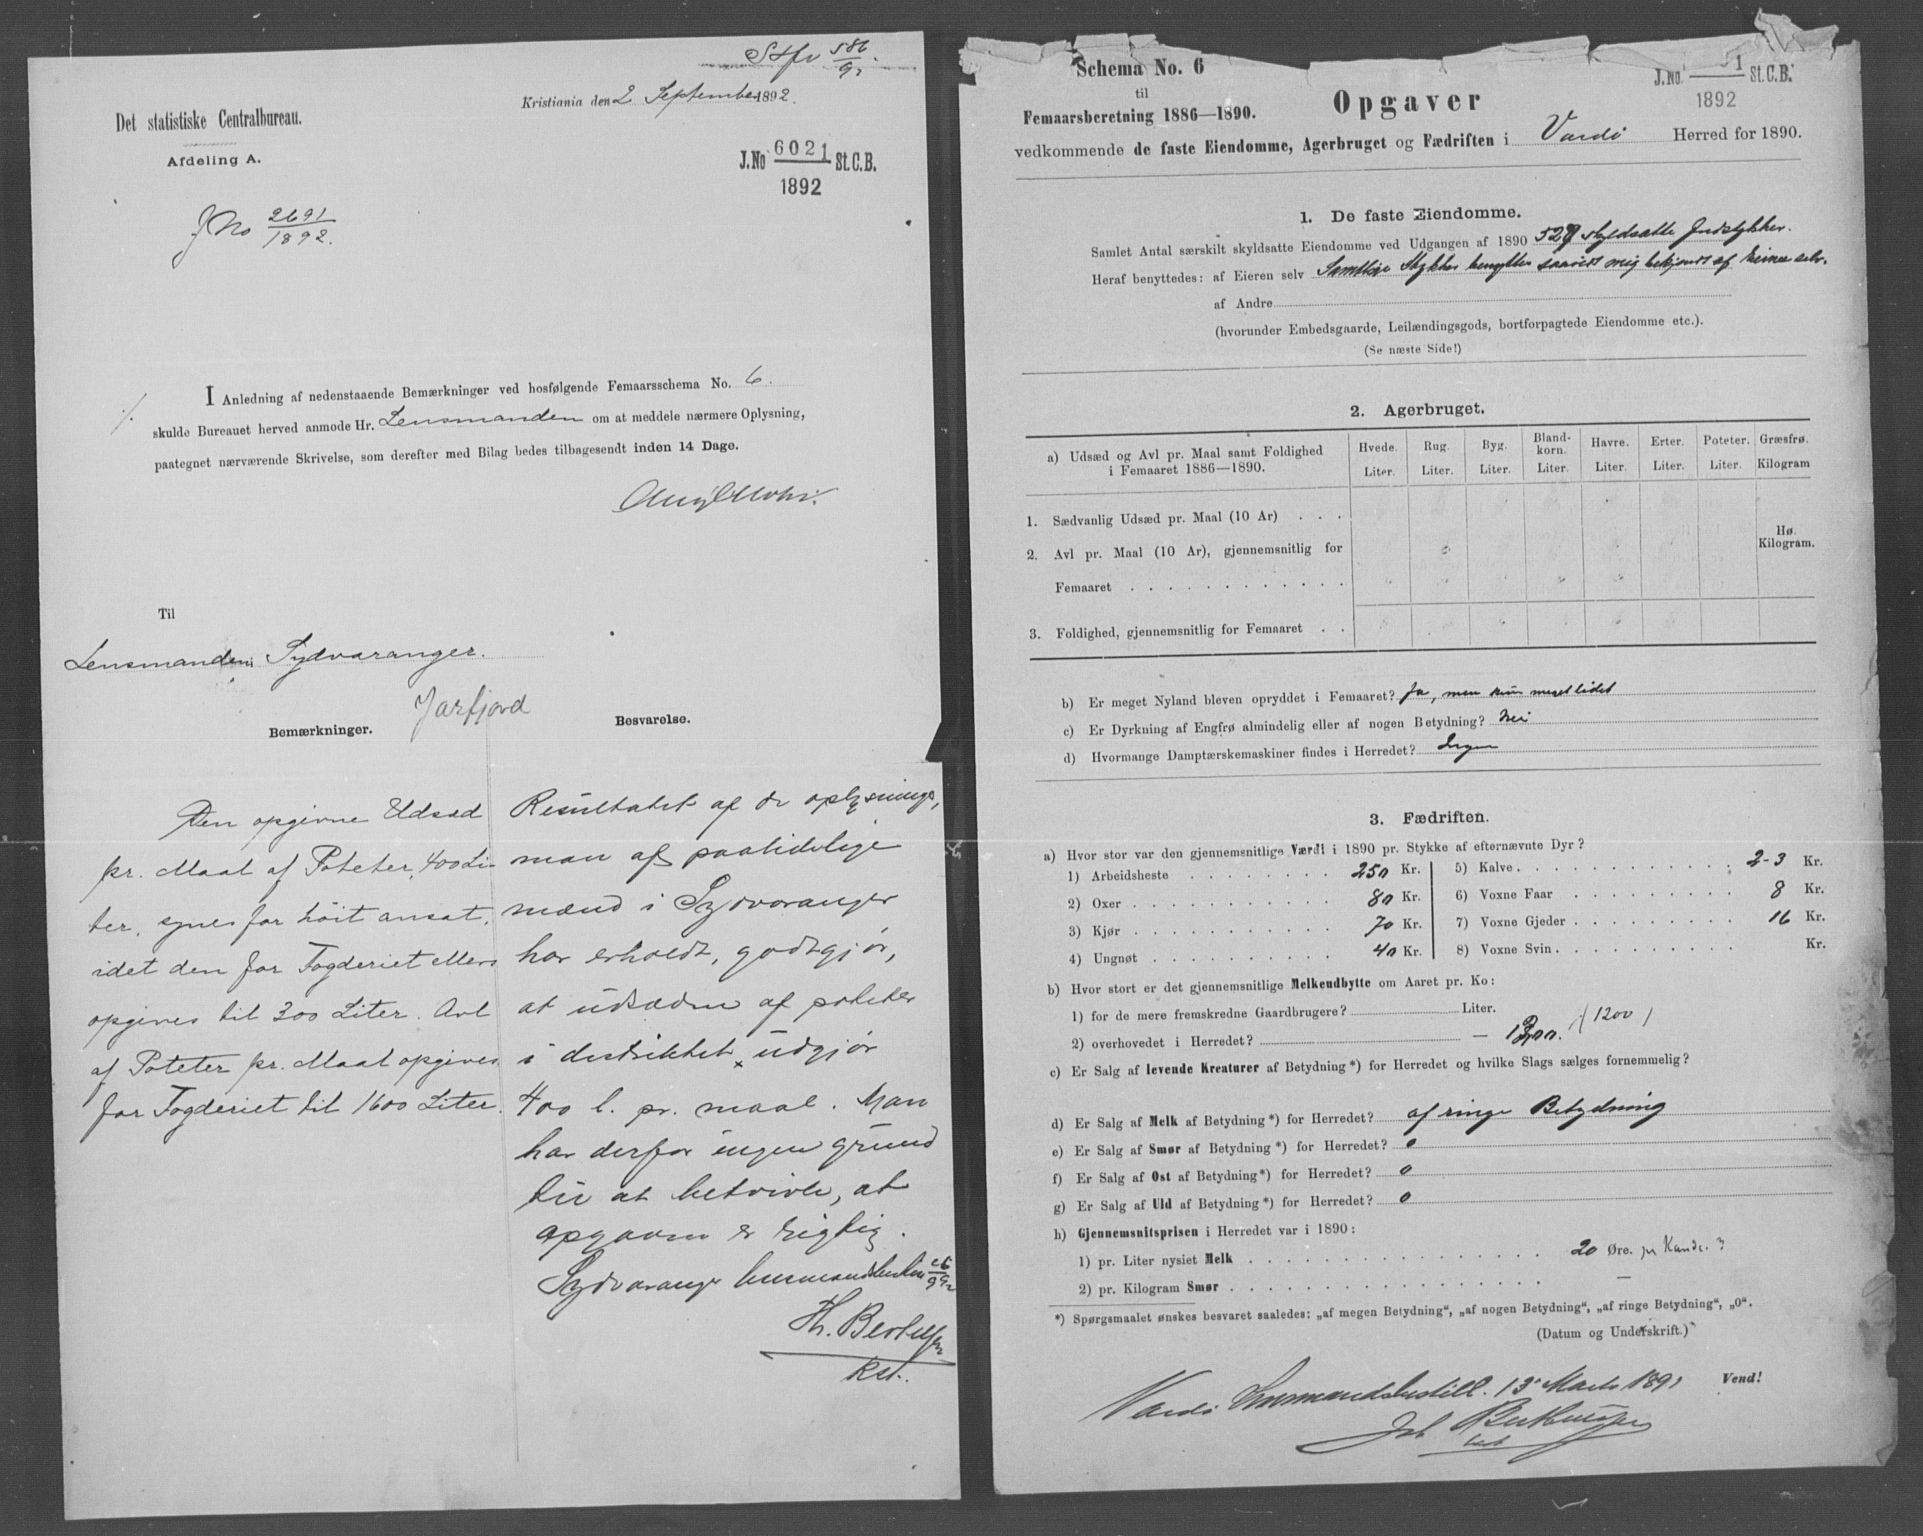 Stfv 586/92.
Kristiania den 2 September 1892.
Det statistiske Centralbureau.
Afdeling A.
J.No 6021 St.C.B.
1892
J No 2691/1892.
I Anledning af nedenstaaende Bemærkninger ved hosfølgende Femaarsschema No. 6.
skulde Bureauet herved anmode Hr. Lensmanden om at meddele nærmere Oplysning,
paategnet nærværende Skrivelse, som derefter med Bilag bedes tilbagesendt inden 14 Dage.
Til
Lensmanden i Sydvaranger.
Jarfjord
Bemærkninger.
Den opgivne Udsæd
pr. Maal af Poteter, 400 Li-
ter, synes for høit ansat,
idet den for Fogderiet ellers
opgives til 300 Liter. Avl
af Poteter pr. Maal opgives
for Fogderiet til 1600 Liter.
Besvarelse.
Resultatet af de oplysninger,
man af paalidelige
mænd i Sydvaranger
har erholdt, godtgjør,
at udsæden af poteter
i distriktet udgjør
400 l. pr. maal. Man
har derfor ingen grund
til at betvivle, at
opgaven er rigtig.
Sydvaranger lensmandsbestill 26/9 92
H. Bertelsen
kst.
Schema No. 6
til
Femaarsberetning 1886—1890.
Opgaver
J.No. 1 St.C.B.
1892
vedkommende de faste Eiendomme, Agerbruget og Fædriften i Vardø Herred for 1890.
1. De faste Eiendomme.
Samlet Antal særskilt skyldsatte Eiendomme ved Udgangen af 1890 529 skyldsatte Jordstykker.
Heraf benyttedes: af Eieren selv Samtlige Stykker benyttes saavidt mig bekjendt af Eierne selv.
af Andre
(hvorunder Embedsgaarde, Leilændingsgods, bortforpagtede Eiendomme etc.).
(Se næste Side!)
2. Agerbruget.
a) Udsæd og Avl pr. Maal samt Foldighed
i Femaaret 1886—1890.
Hvede. Rug. Byg. Bland-korn. Havre. Erter. Poteter. Græsfrø.
Liter. Liter. Liter. Liter. Liter. Liter. Liter. Kilogram
1. Sædvanlig Udsæd pr. Maal (10 Ar) . . .
Hø.
Kilogram.
2. Avl pr. Maal (10 Ar), gjennemsnitlig for
Femaaret . . . . . . . . . . . .
3. Foldighed, gjennemsnitlig for Femaaret . .
b) Er meget Nyland bleven opryddet i Femaaret? Ja, men kun meget lidet
c) Er Dyrkning af Engfrø almindelig eller af nogen Betydning? Nei
d) Hvormange Damptærskemaskiner findes i Herredet? Ingen
3. Fædriften.
a) Hvor stor var den gjennemsnitlige Værdi i 1890 pr. Stykke af efternævnte Dyr?
1) Arbeidsheste . . . . . . . . 250 Kr.
2) Oxer . . . . . . . . . . . 80 Kr.
3) Kjør . . . . . . . . . . . 70 Kr.
4) Ungnøt . . . . . . . . . . 40 Kr.
5) Kalve . . . . . . . . . . . 2-3 Kr.
6) Voxne Faar . . . . . . . . . 8 Kr.
7) Voxne Gjeder . . . . . . . . 16 Kr.
8) Voxne Svin . . . . . . . . . Kr.
b) Hvor stort er det gjennemsnitlige Melkeudbytte om Aaret pr. Ko:
1) for de mere fremskredne Gaardbrugere? Liter.
2) overhovedet i Herredet? — (1200)
c) Er Salg af levende Kreaturer af Betydning*) for Herredet og hvilke Slags sælges fornemmelig?
d) Er Salg af Melk af Betydning*) for Herredet? af ringe Betydning
e) Er Salg af Smør af Betydning*) for Herredet? 0
f) Er Salg af Ost af Betydning*) for Herredet? 0
g) Er Salg af Uld af Betydning*) for Herredet? 0
h) Gjennemsnitsprisen i Herredet var i 1890:
1) pr. Liter nysiet Melk . . . . . . . . . . . . . . . . 20 Øre. pr Kande ?
2) pr. Kilogram Smør . . . . . . . . . . . . . . . . —
*) Spørgsmaalet ønskes besvaret saaledes: „af megen Betydning“, „af nogen Betydning“, „af ringe Betydning“, „0“.
(Datum og Underskrift.)
Vardø Lensmandsbestill. 13 Marts 1891
Vend!